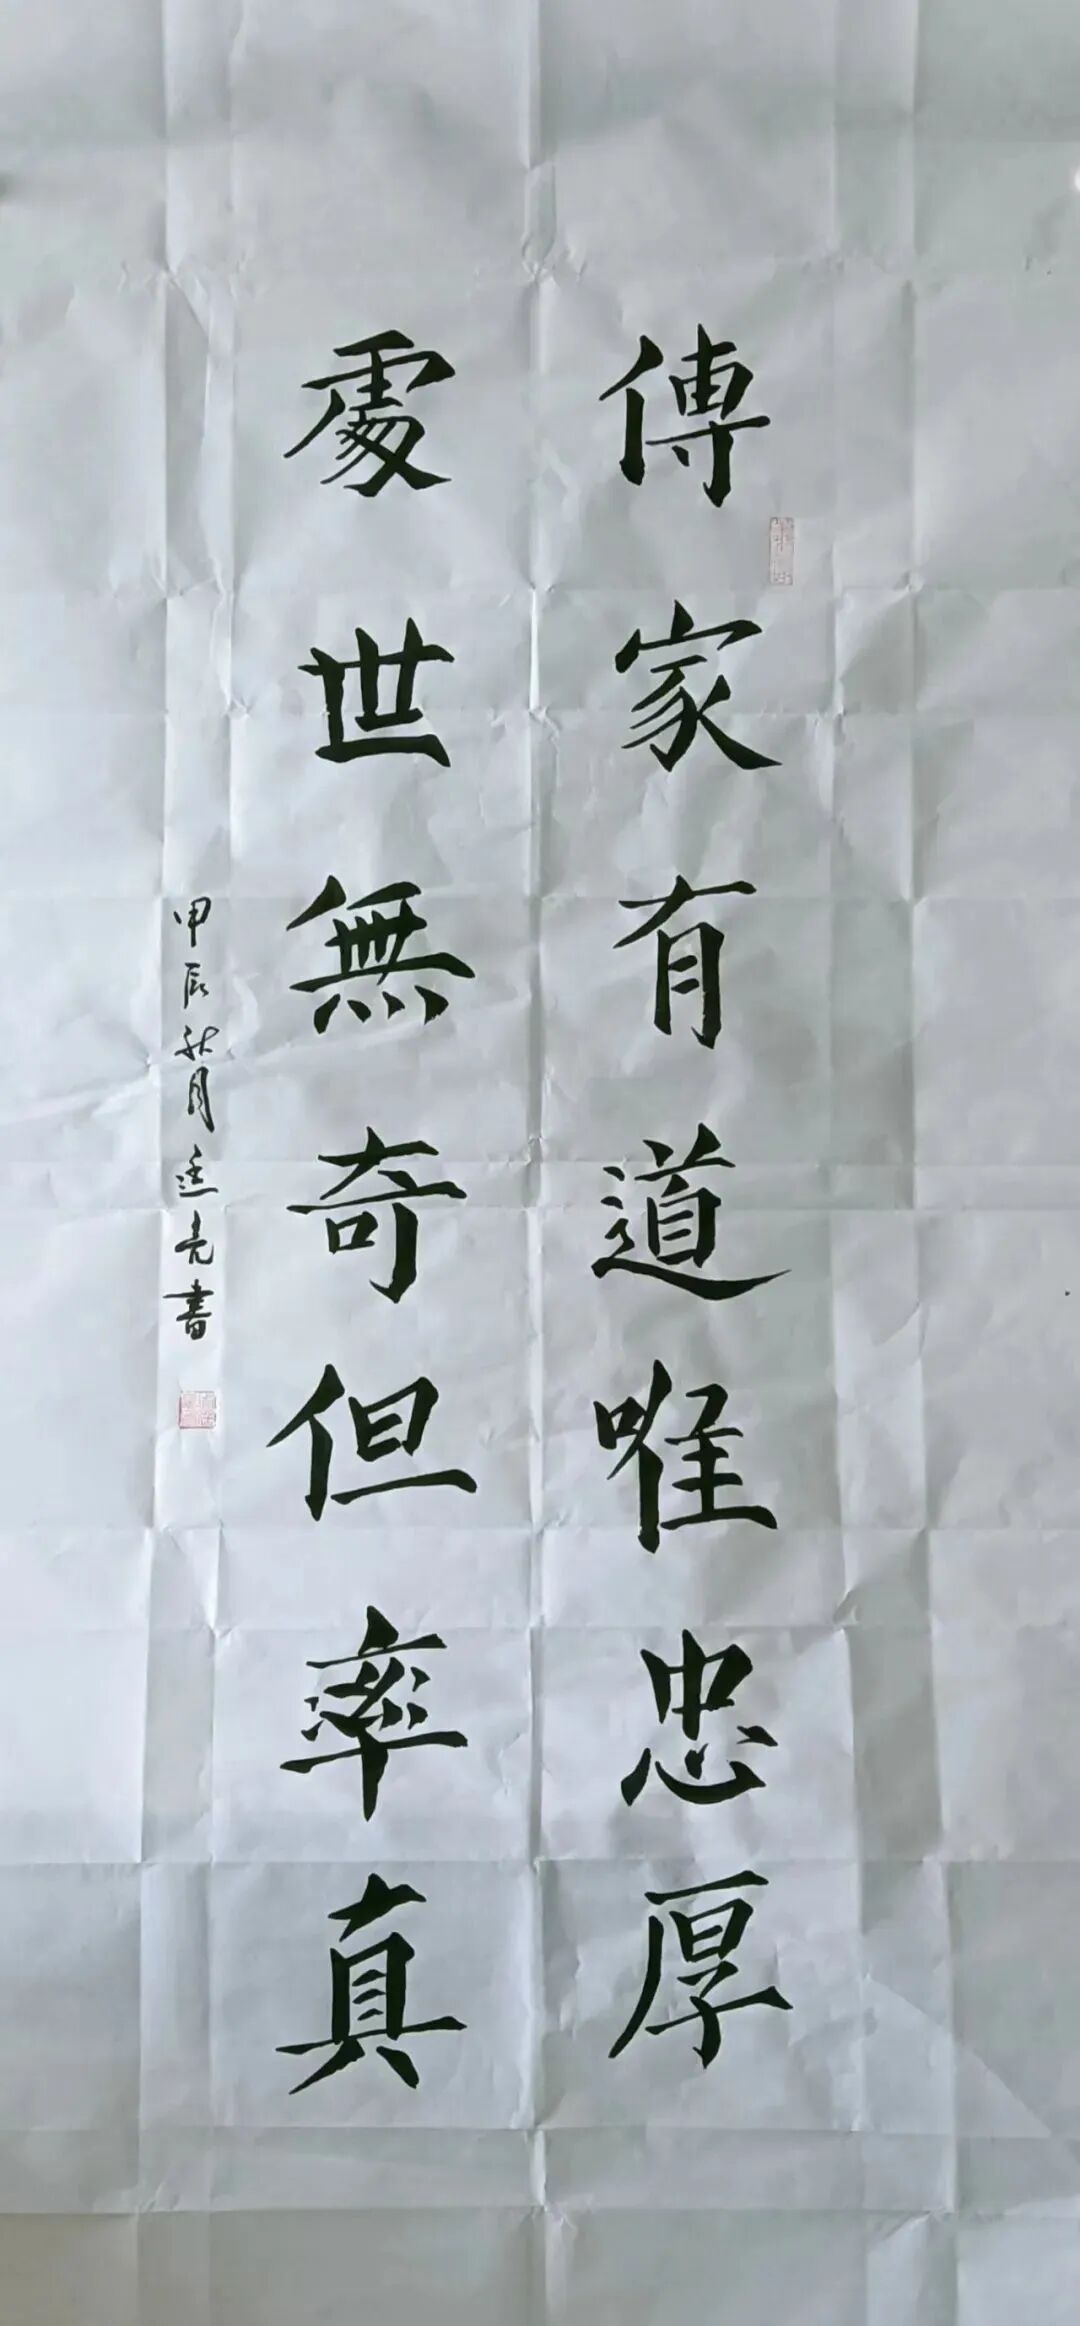 傳家有道唯忠厚
處世無奇但率真
甲辰秋月廷亮書